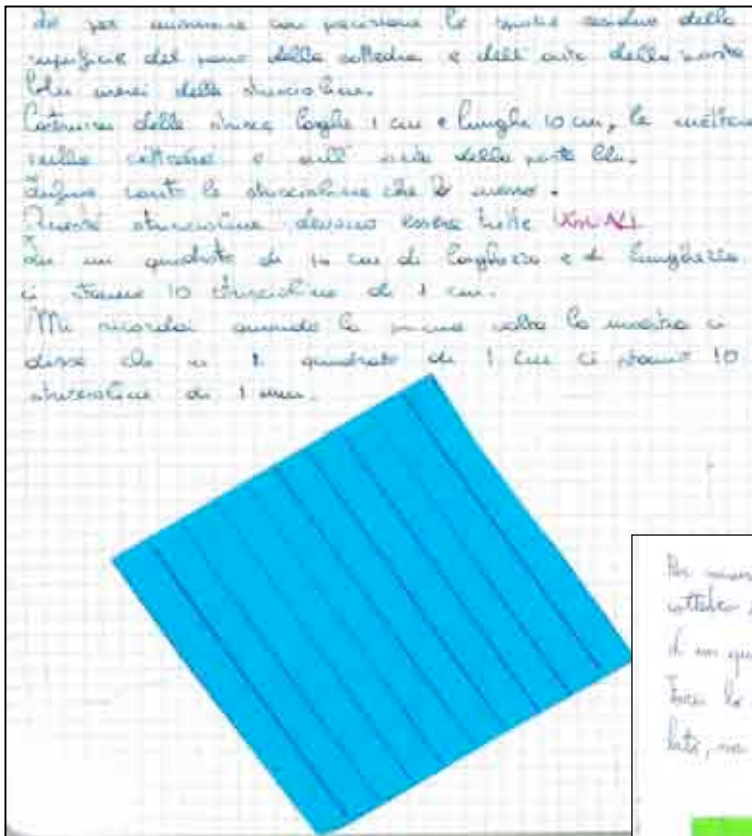 Io per misurare con precisione lo spazio residuo della
superficie del piano della cattedra e dell'anta della porta
blu userei delle striscioline.
Costruirei delle strisce larghe 1 cm e lunghe 10 cm, le metterei
sulla cattedra e sull'anta della porta blu.
conto le striscioline che messo.
Queste striscioline devono essere tutte UGUALI
In un quadrato di 10 cm di larghezza e di lunghezza
ci stanno 10 striscioline di 1 cm.
Mi ricordai quando la prima volta la maestra ci
disse che in 1 quadrato di 1 cm ci stanno 10
striscioline di 1 mm.
Per
cattedra
di un